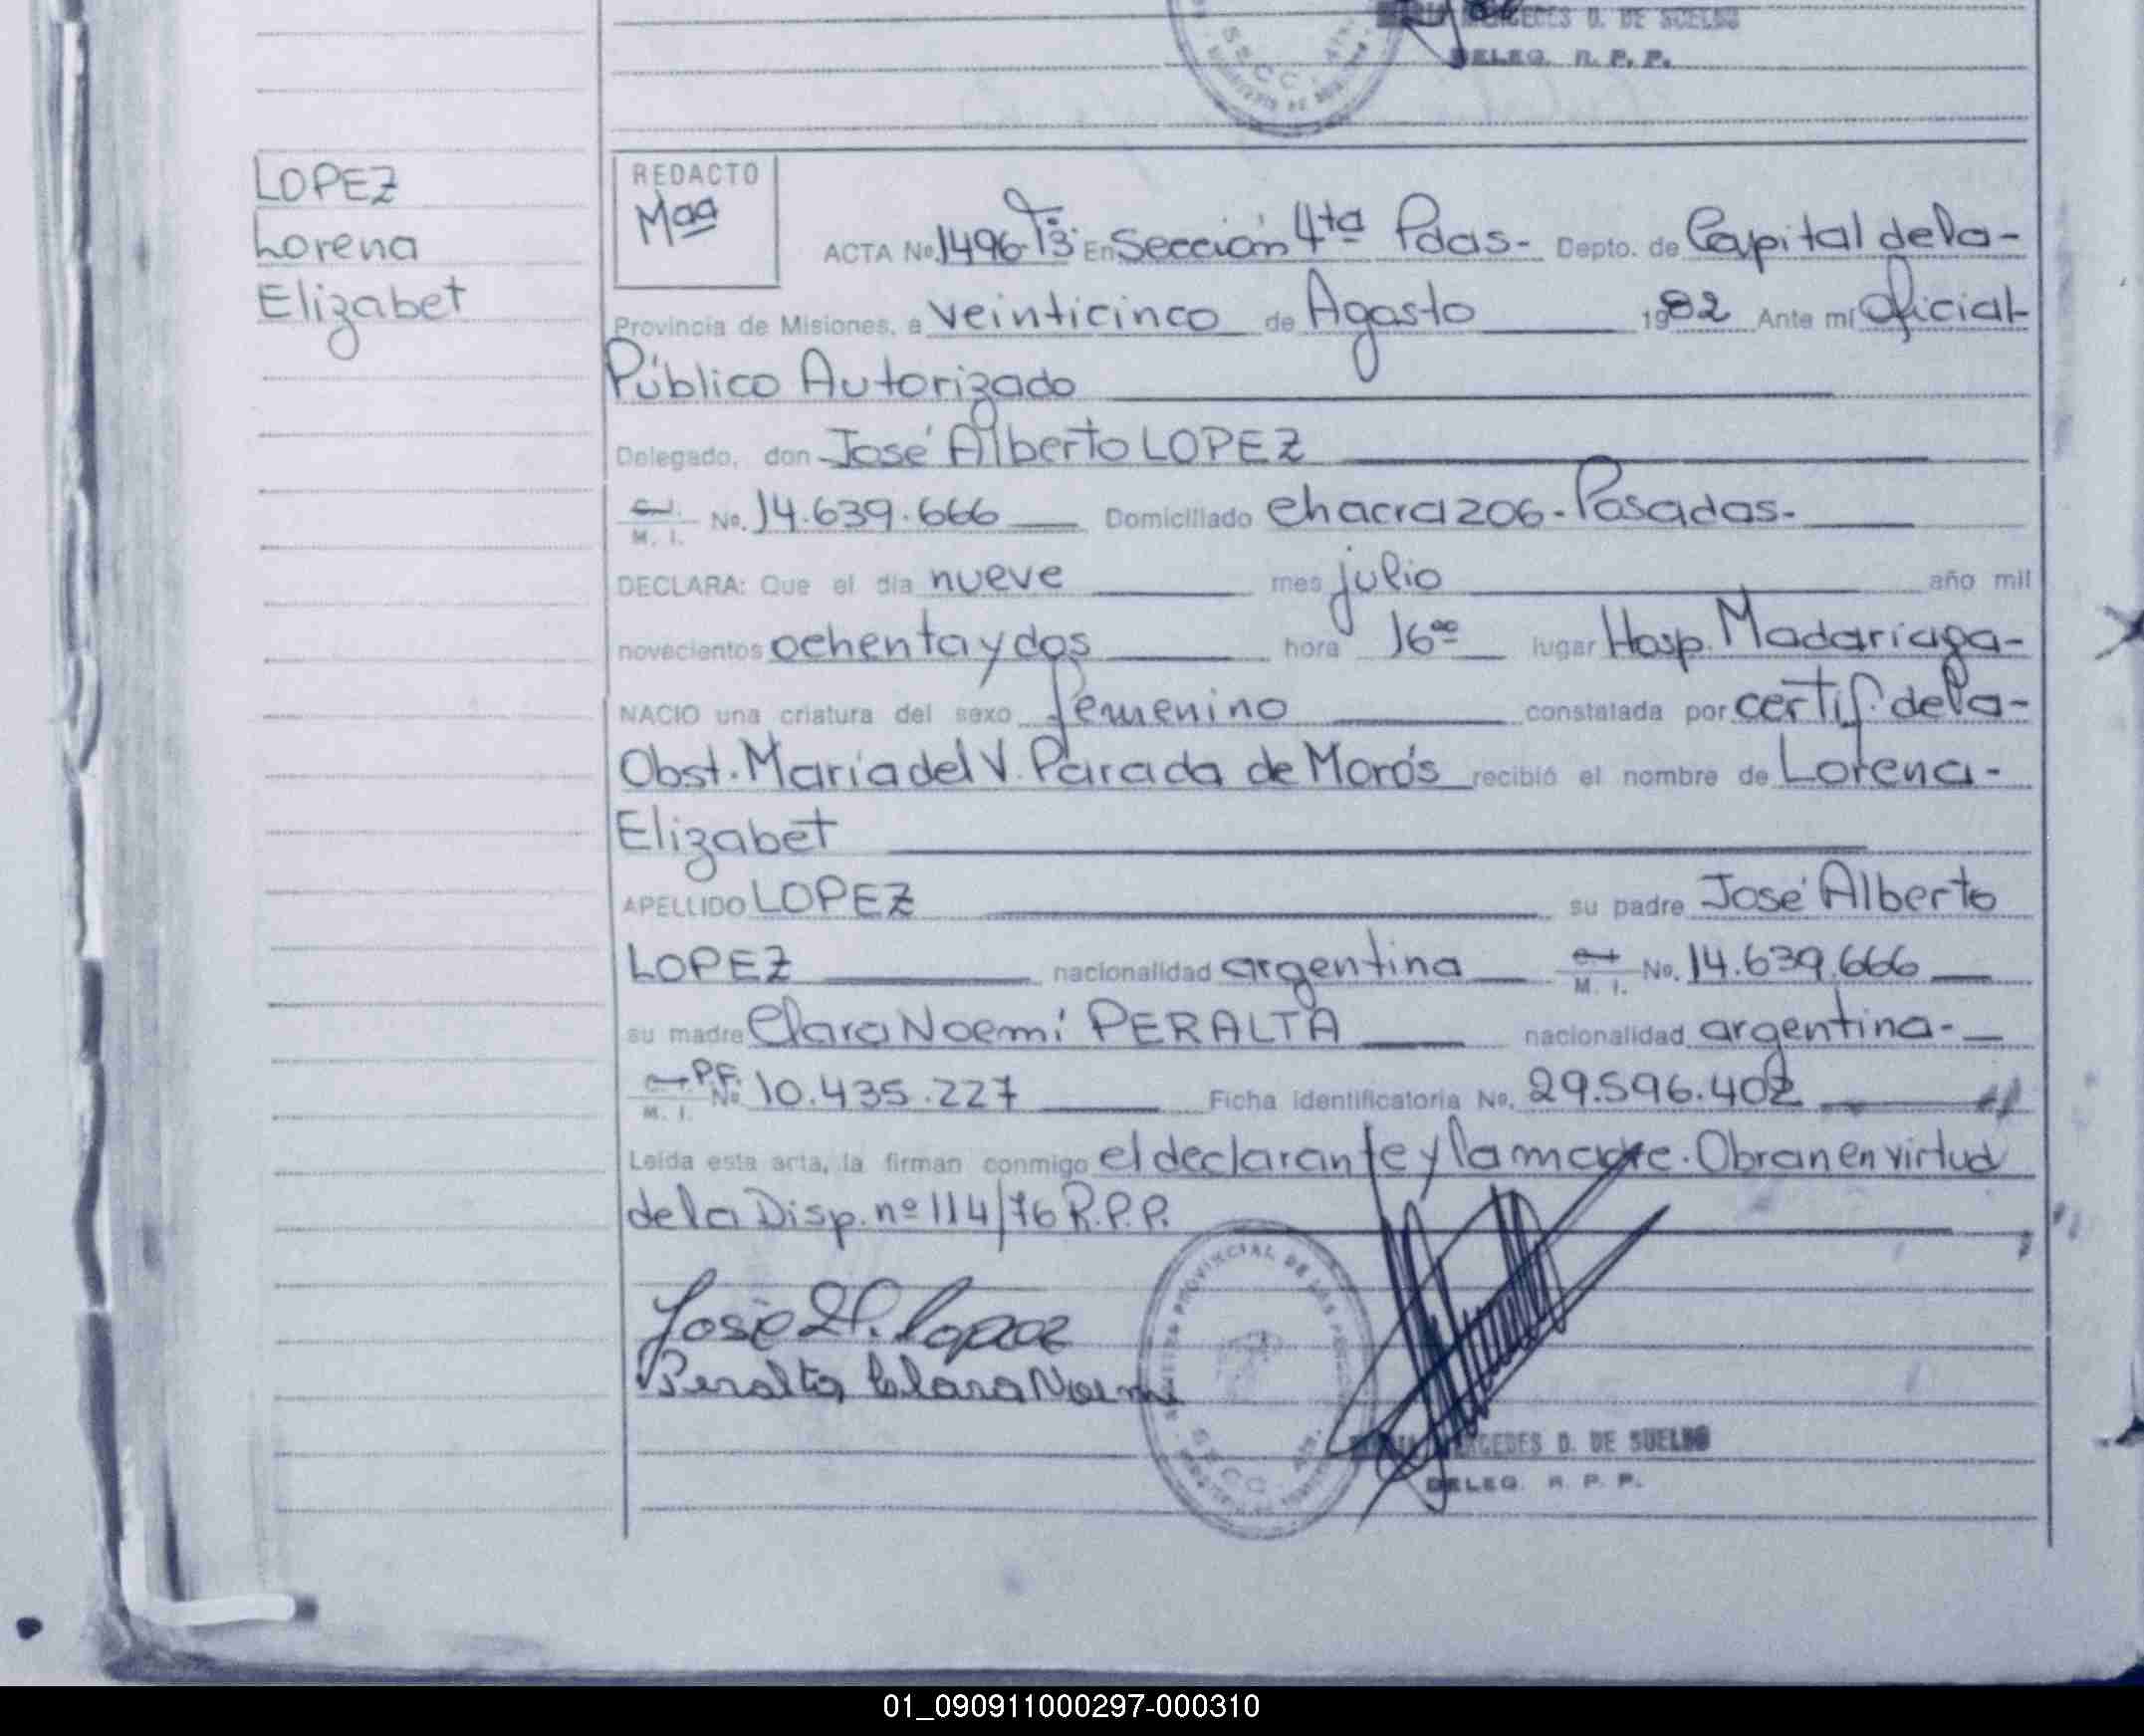 MERCEDES D. DE SUELDO
DELEG. R. P. P.
SECC. 4ta.
LOPEZ
Lorena
Elizabet
REDACTO
Maa
ACTA No. 1496 Tº3 En Sección 4ta Pdas- Depto. de Capital de la-
Provincia de Misiones, a veinticinco de Agosto 1982 Ante mí Oficial
Público Autorizado
Delegado, don José Alberto LOPEZ
M. I. No. 14.639.666 Domiciliado chacra 206-Posadas-
DECLARA: Que el día nueve mes julio año mil
novecientos ochenta y dos hora 16⁰⁰ lugar Hosp. Madariaga-
NACIO una criatura del sexo femenino constatada por certif. de la-
Obst. María del V. Parada de Morós recibió el nombre de Lorena-
Elizabet
APELLIDO LOPEZ su padre José Alberto
LOPEZ nacionalidad argentina M. I. No. 14.639.666
su madre Clara Noemí PERALTA nacionalidad argentina-
M. I. P.F. No. 10.435.227 Ficha identificatoria No. 29.596.402
Leída esta acta, la firman conmigo el declarante y la madre. Obran en virtud
de la Disp. nº 114/76 R.P.P.
José A. Lopez
Peralta, Clara Noemi
PROVINCIAL DE LAS
SECC.
MERCEDES D. DE SUELDO
DELEG. R. P. P.
01_090911000297-000310